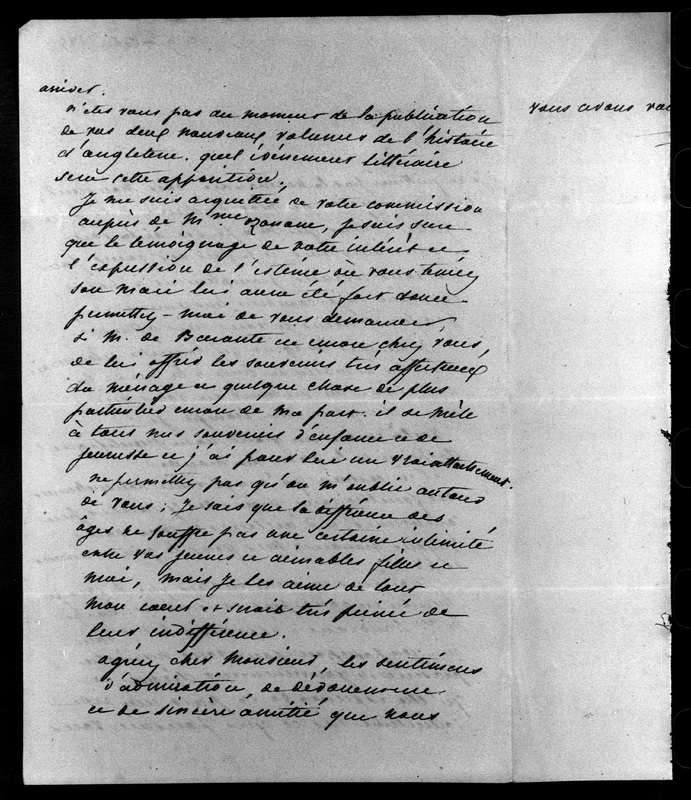 arrivés.
n'etes vous pas au moment de la publication
de vos deux nouveaux volumes de l'histoire
d'angleterre. quel évènement littéraire
sera cette apparition,
Je me suis acquittée de votre commission
auprès de Mme Ozanam, je suis sure
que le témoignage de votre intérêt et
l'expression de l'estime où vous teniez
son mari lui aura été fort douce.
permettez-moi de vous demander
si M. de Barante est encore chez vous,
de lui offrir les souvenirs très affectueux
du ménage et quelque chose de plus
particulier encore de ma part. il se mêle
à tous mes souvenirs d'enfance et de
jeunesse et j'ai pour lui un vrai attachement.
ne permettez pas qu'on m'oublie autour
de vous; Je sais que la différence des
âges ne souffre pas une certaine intimité
entre vos jeunes et aimables filles et
moi, mais je les aime de tout
mon coeur et serais très peinée de
leur indifférence.
agréez cher Monsieur, les sentimens
d'admiration, de dévouement
et de sincère amitié que nous
vous avons